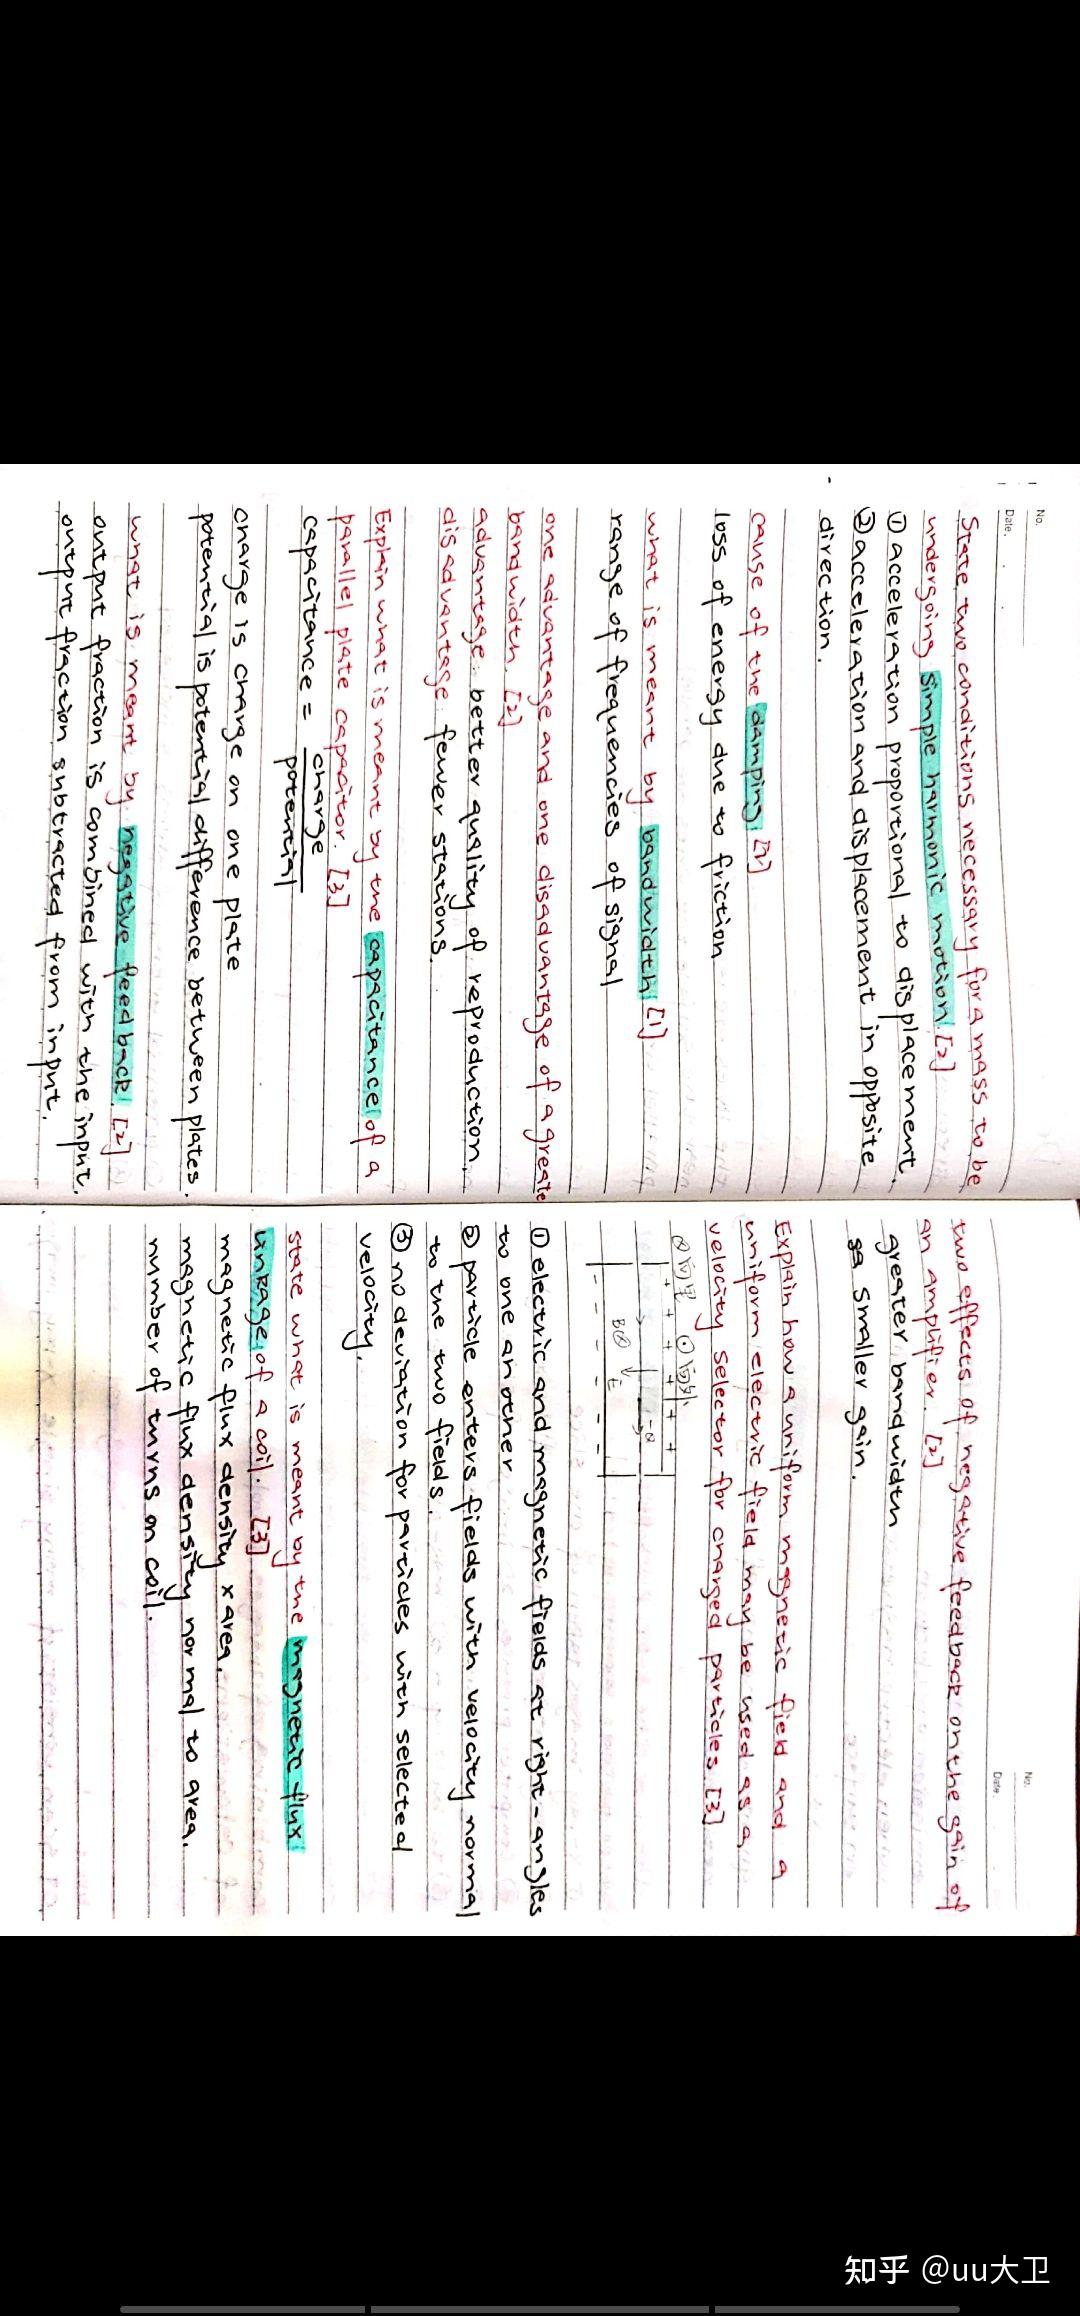 No.
Date.
State two conditions necessary for a mass to be
undergoing simple harmonic motion. [2]
① acceleration proportional to displacement.
② acceleration and displacement in opposite
direction.
cause of the damping.
loss of energy due to friction
what is meant by bandwidth. [1]
range of frequencies of signal
one advantage and one disadvantage of a greate
bandwidth. [2]
advantage: better quality of reproduction.
disadvantage: fewer stations.
Explain what is meant by the capacitance of a
parallel plate capacitor. [3]
capacitance = charge
potential
charge is charge on one plate
potential is potential difference between plates.
what is meant by negative feedback. [2]
output fraction is combined with the input.
output fraction subtracted from input.
No.
Date.
two effects of negative feedback on the gain of
an amplifier. [2]
greater bandwidth
smaller gain.
Explain how a uniform magnetic field and a
uniform electric field may be used as a
velocity selector for charged particles [3]
⊗ 向里 ⊙ 向外
+ + + + + + +
B⊗ E
- - - - - -
① electric and magnetic fields at right-angles
to one another
② particle enters fields with velocity normal
to the two fields.
③ no deviation for particles with selected
velocity.
state what is meant by the magnetic flux
linkage of a coil. [3]
magnetic flux density x area.
magnetic flux density normal to area.
number of turns on coil.
知乎 @uu大卫